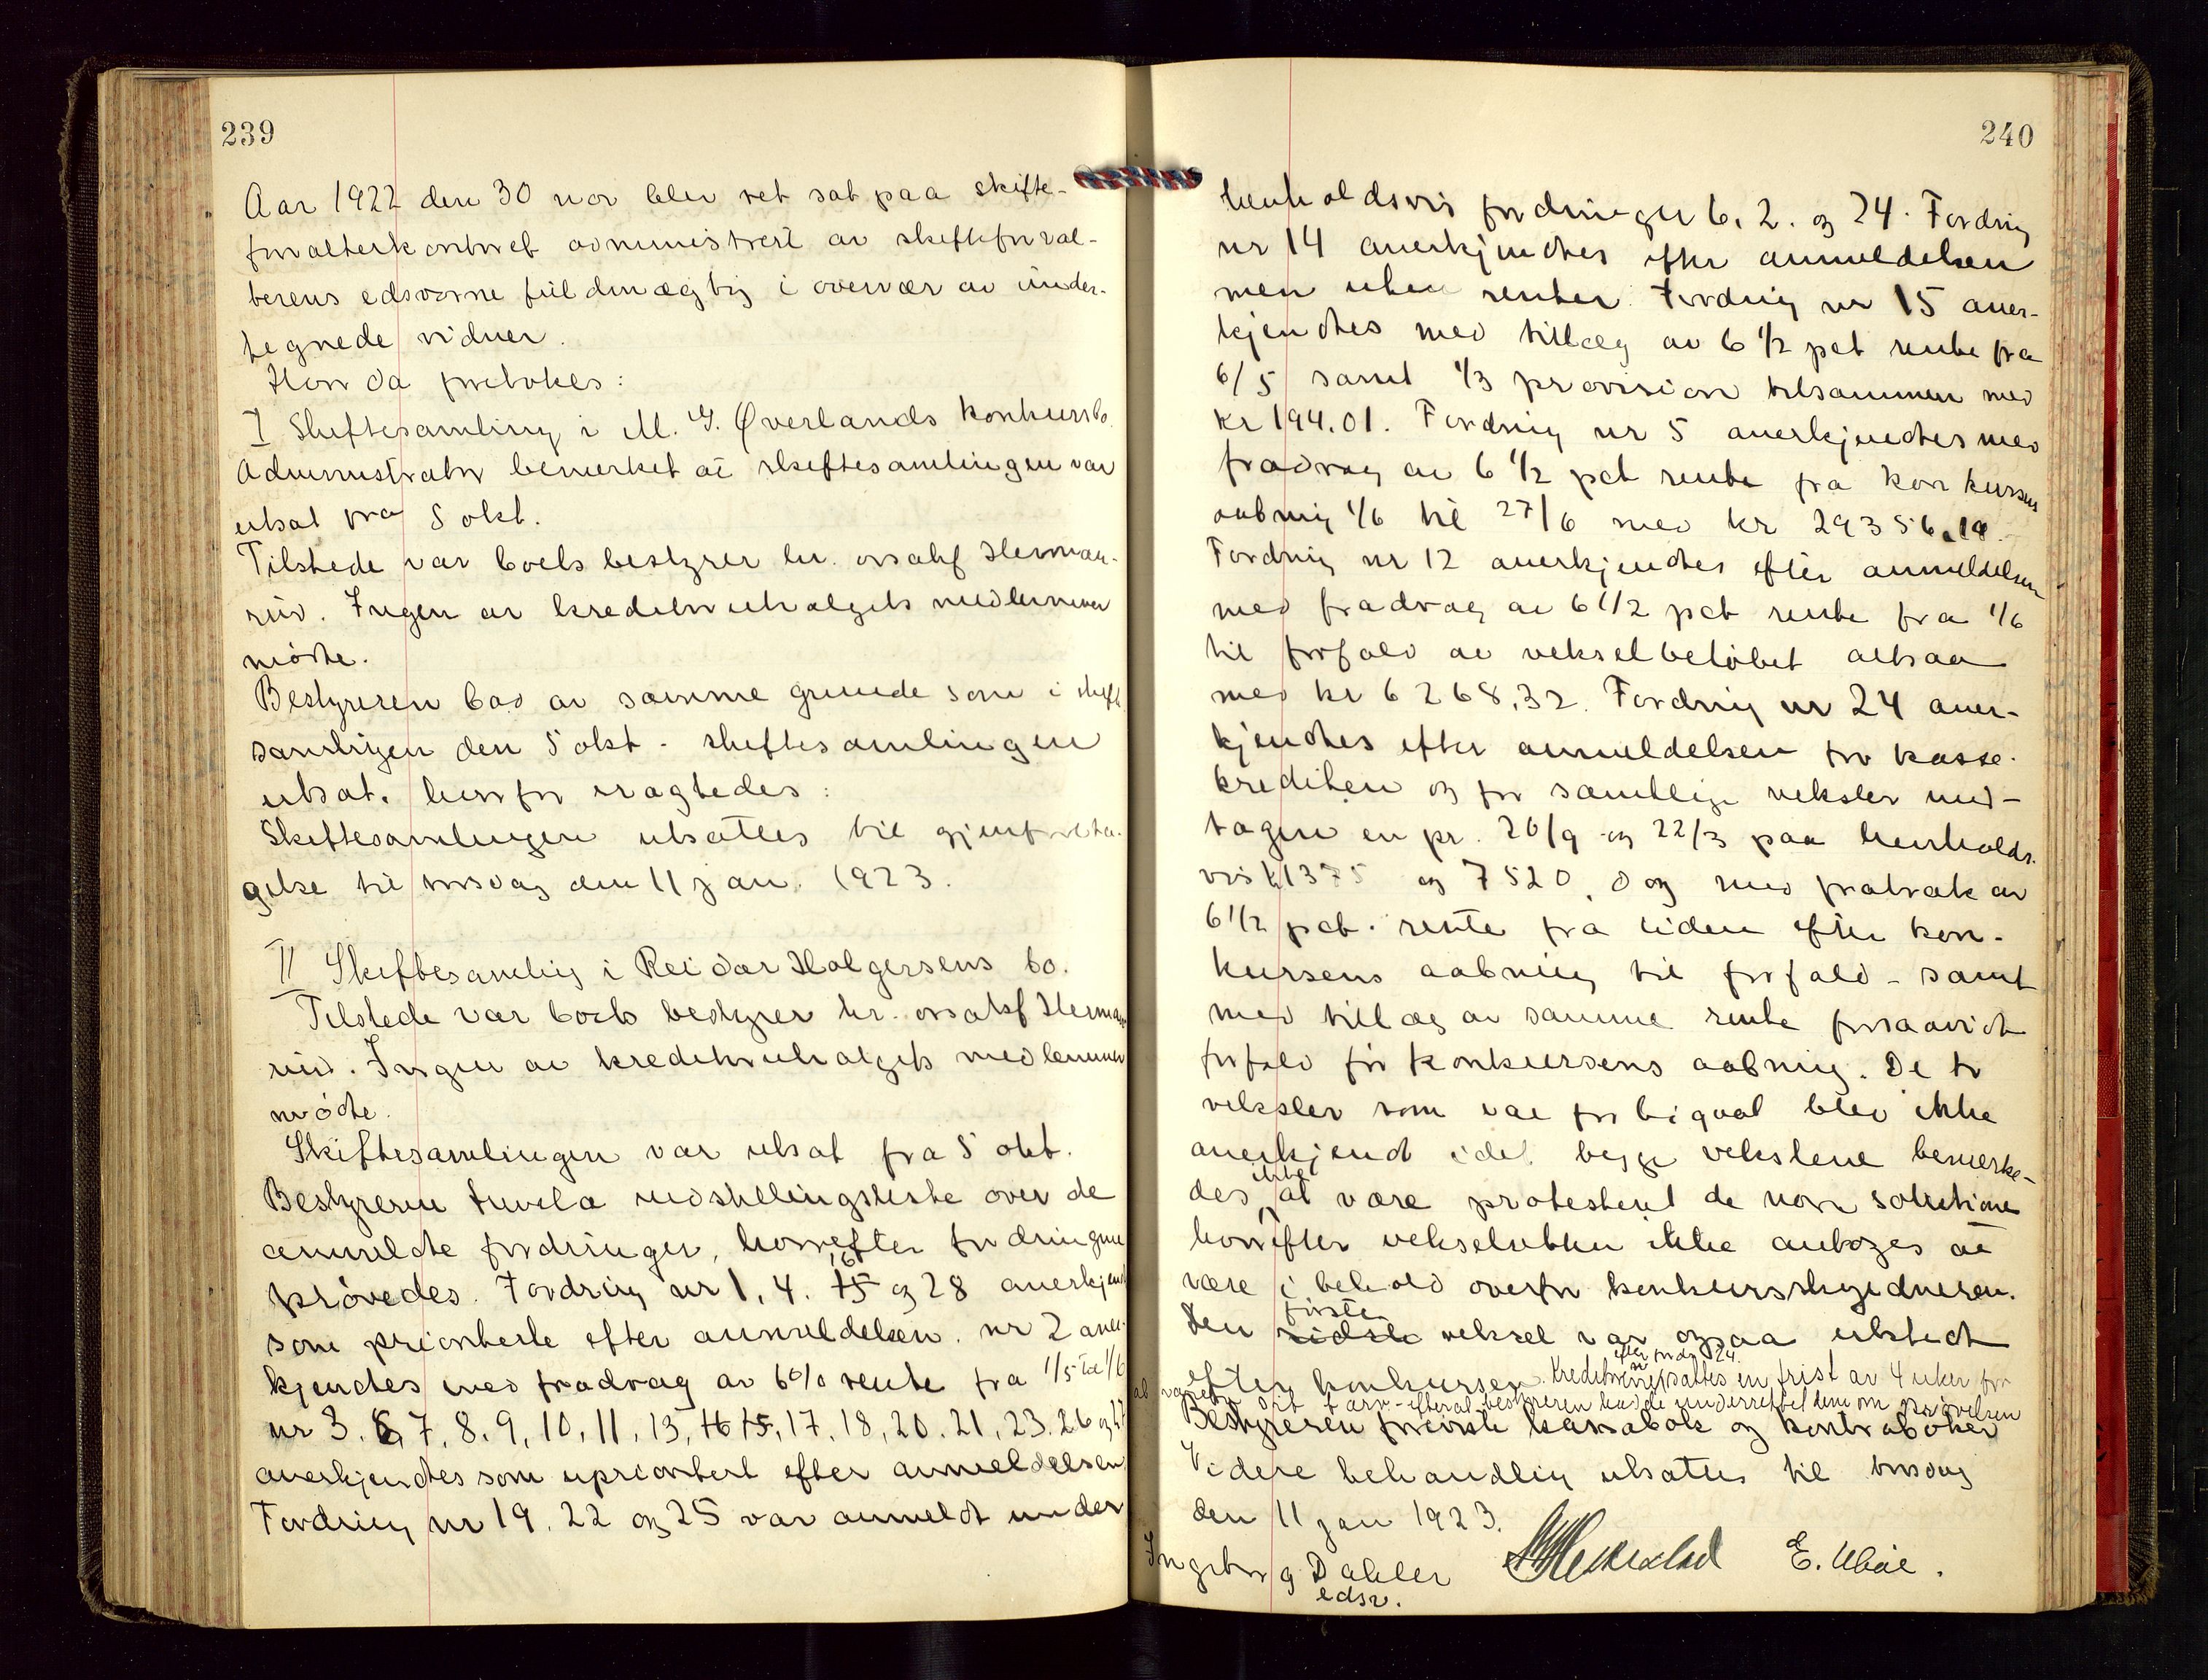 239
Aar 1922 den 30 nov blev ret sat paa skifte-
forvalterkontoret administrert av skifteforval-
terens edsvorne fuldmægtig i overvær av under-
tegnede vidner.
Hvor da foretokes:
I Skiftesamling i M. G. Øverlands konkursbo.
Administrator bemerket at skiftesamlingen var
utsat fra 5 okt.
Tilstede var boets bestyrer hr. orsakf Herman-
rud. Ingen av kreditorutvalgets medlemmer
møtte.
Bestyreren bad av samme grunde som i skifte
samlingen den 5 okt - skiftesamlingen
utsat. hvorfor eragtedes:
Skiftesamlingen utsattes til gjenforeta-
gelse til torsdag den 11 jan. 1923.
II Skiftesamling i Reidar Holgersens bo.
Tilstede var boets bestyrer hr. orsakf Herman
rud. Ingen av kreditorutvalgets medlemmer
møtte.
Skiftesamlingen var utsat fra 5 okt.
Bestyreren fremla indstillingsliste over de
anmeldte fordringer, hvorefter fordringene
16
prøvedes. Fordring nr 1, 4. 15 og 28 anerkjend
som prioriterte efter anmeldelsen. nr 2 aner-
kjendtes med fradrag av 6% rente fra 1/5 til 1/6
nr 3. 6, 7, 8, 9, 10, 11, 13, 16 15, 17, 18, 20, 21, 23, 26 og 27
anerkjendtes som uprioritert efter anmeldelsen.
Fordring nr 19, 22 og 25 var anmeldt under
240
henholdsvis fordringer 6, 2. og 24. Fordring
nr 14 anerkjendtes efter anmeldelsen
men uten renter. Fordring nr 15 aner-
kjendtes med tillæg av 6 1/2 pct rente fra
6/5 samt 1/3 provision tilsammen med
kr 194.01. Fordring nr 5 anerkjendtes med
fradrag av 6 1/2 pct rente fra konkursens
aabning 1/6 til 27/6 med kr 29356.19.
Fordring nr 12 anerkjendtes efter anmeldelsen
med fradrag av 6 1/2 pct rente fra 1/6
til forfald av vekselbeløbet altsaa
med kr 6268,32. Fordring nr 24 aner-
kjendtes efter anmeldelsen for kasse-
krediten og for samtlige veksler und-
tagen en pr. 20/9 og 22/3 paa henholds-
vis kr 1375 og 7520, dog med fratræk av
6 1/2 pct. rente fra tiden efter kon-
kursens aabning til forfald - samt
med tillæg av samme rente forsaavidt
forfald før konkursens aabning. De to
veksler som var forbigaat blev ikke
anerkjend idet begge vekslene bemerke-
ikke
des at være protestert de non solutione
hvorefter vekselretten ikke antages at
være i behold overfor konkursskyldneren.
første
Den sidste veksel var ogsaa utstedt
efter fordr 24.
efter konkursen. Kreditoren sattes en frist av 4 uker for
at vareta sit tarv - efterat bestyreren hadde underrettet dem om prøvelsen
Bestyreren foreviste kassabok og kontrabøker
Videre behandling utsattes til torsdag
den 11 jan 1923.
Ingeborg Dahler
edsv.
E. Uboe.